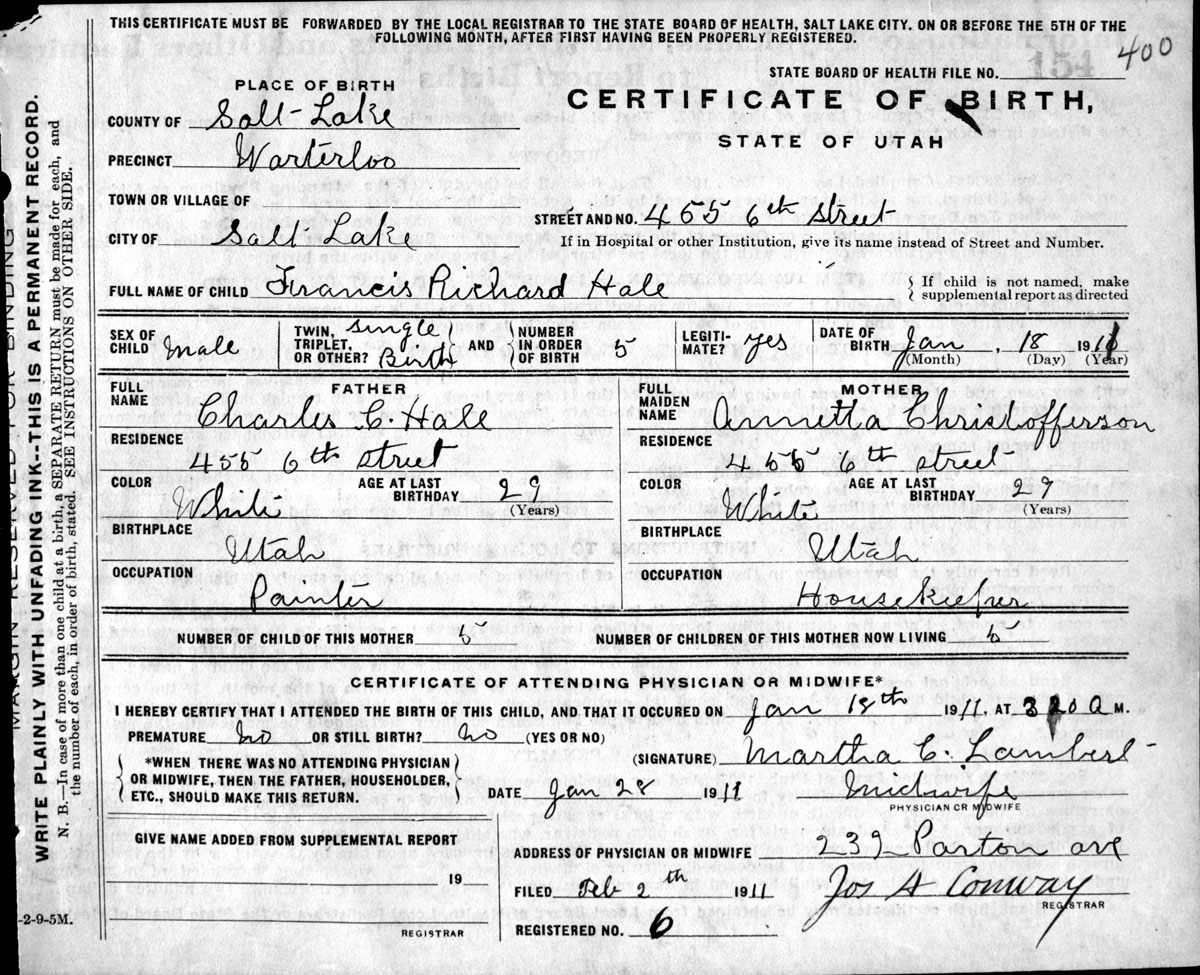 THIS CERTIFICATE MUST BE FORWARDED BY THE LOCAL REGISTRAR TO THE STATE BOARD OF HEALTH, SALT LAKE CITY. ON OR BEFORE THE 5TH OF THE
FOLLOWING MONTH, AFTER FIRST HAVING BEEN PROPERLY REGISTERED.
400
PLACE OF BIRTH
STATE BOARD OF HEALTH FILE NO. 154
COUNTY OF Salt Lake
CERTIFICATE OF BIRTH,
PRECINCT Warterloo
STATE OF UTAH
TOWN OR VILLAGE OF
STREET AND NO. 455 6th Street
CITY OF Salt Lake
If in Hospital or other Institution, give its name instead of Street and Number.
FULL NAME OF CHILD Francis Richard Hale
If child is not named, make
supplemental report as directed
SEX OF CHILD Male
TWIN, TRIPLET, OR OTHER? Single Birth
AND NUMBER IN ORDER OF BIRTH 5
LEGITIMATE? yes
DATE OF BIRTH Jan, 18 1911
(Month) (Day) (Year)
FATHER
FULL NAME Charles C. Hale
RESIDENCE
455 6th Street
COLOR White AGE AT LAST BIRTHDAY 29
(Years)
BIRTHPLACE
Utah
OCCUPATION
Painter
MOTHER
FULL MAIDEN NAME Annetta Christofferson
RESIDENCE
455 6th Street
COLOR White AGE AT LAST BIRTHDAY 29
(Years)
BIRTHPLACE
Utah
OCCUPATION
Housekeeper
NUMBER OF CHILD OF THIS MOTHER 5 NUMBER OF CHILDREN OF THIS MOTHER NOW LIVING 5
CERTIFICATE OF ATTENDING PHYSICIAN OR MIDWIFE*
I HEREBY CERTIFY THAT I ATTENDED THE BIRTH OF THIS CHILD, AND THAT IT OCCURED ON Jan 18th 1911, AT 320 A M.
PREMATURE No OR STILL BIRTH? No (YES OR NO)
(SIGNATURE) Martha C. Lambert
*WHEN THERE WAS NO ATTENDING PHYSICIAN
OR MIDWIFE, THEN THE FATHER, HOUSEHOLDER,
ETC., SHOULD MAKE THIS RETURN.
DATE Jan 28 1911 Midwife
PHYSICIAN OR MIDWIFE
GIVE NAME ADDED FROM SUPPLEMENTAL REPORT
19
REGISTRAR
ADDRESS OF PHYSICIAN OR MIDWIFE 239 Paxton ave
FILED Feb 2th 1911 Jos H Conway
REGISTRAR
REGISTERED NO. 6
MARGIN RESERVED FOR BINDING
WRITE PLAINLY WITH UNFADING INK--THIS IS A PERMANENT RECORD.
N. B.—In case of more than one child at a birth, a SEPARATE RETURN must be made for each, and
the number of each, in order of birth, stated. SEE INSTRUCTIONS ON OTHER SIDE.
-2-9-5M.